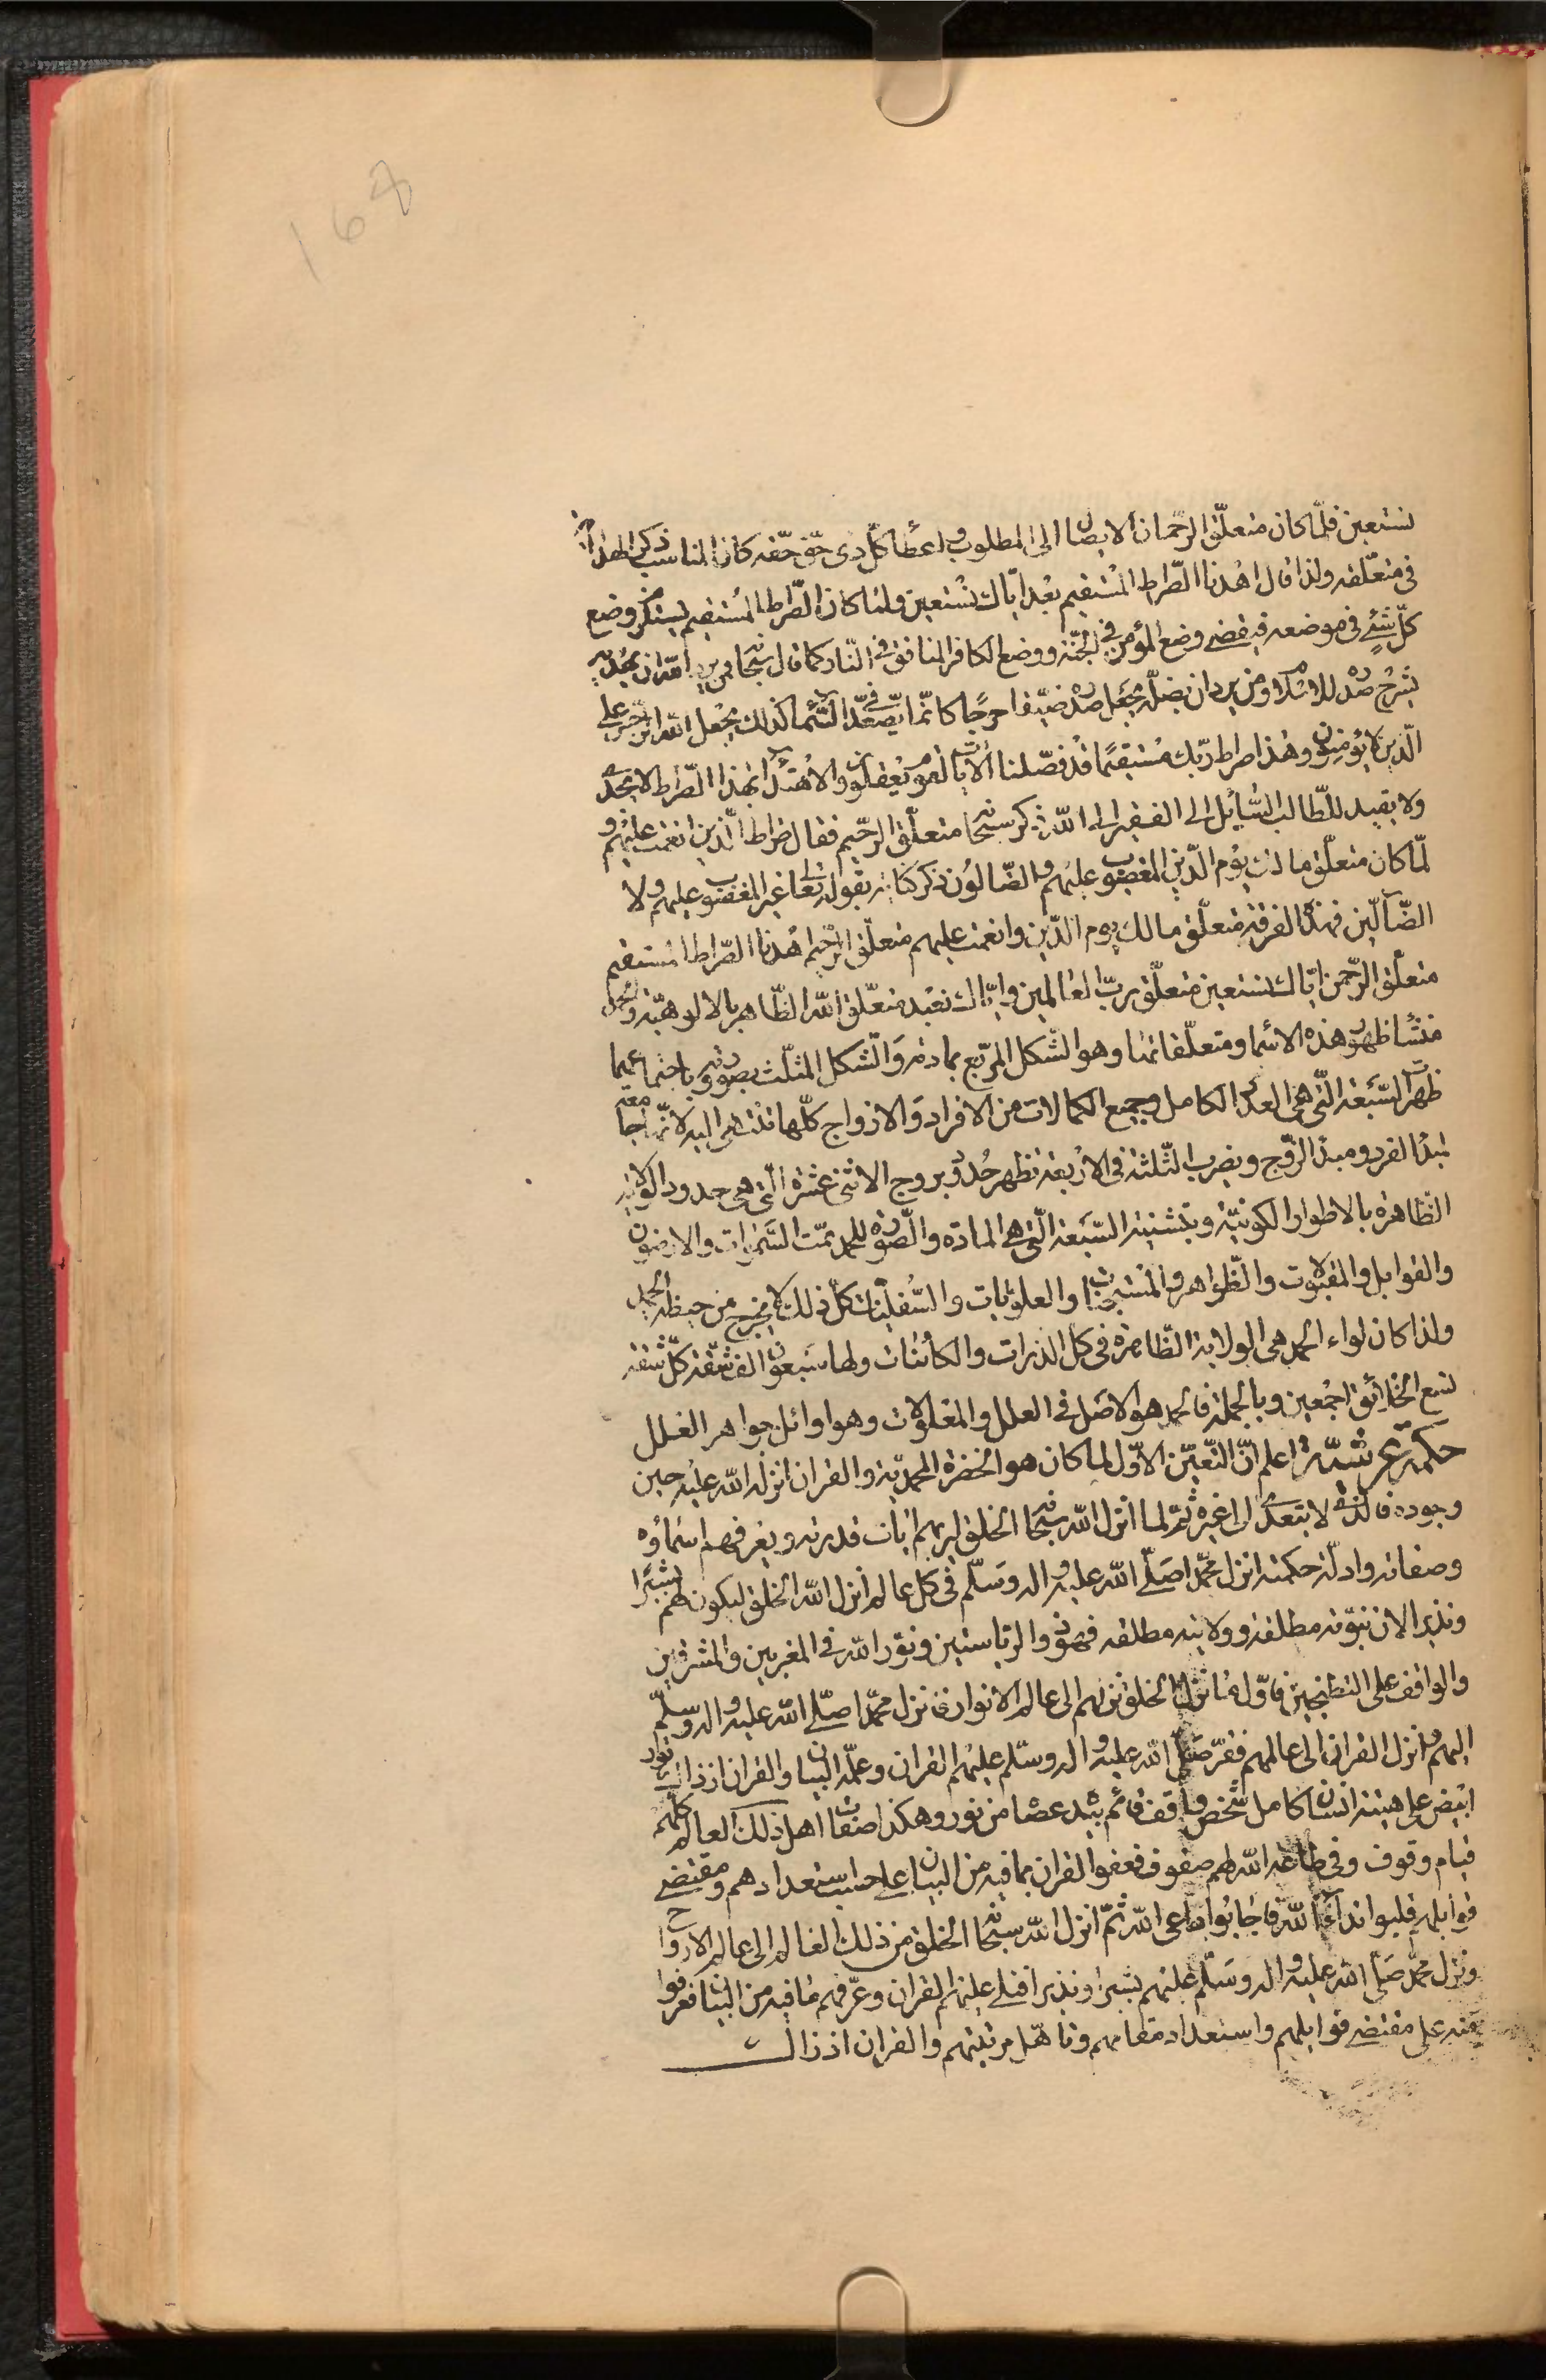 168
نستعين فلمّا كان متعلّق الرحمان الايصال الى المطلوب واعطا كلّ ذى حقّ حقّه كان المناسب ذكر الهداية
فى متعلّقه ولذا قال اهدنا الصّراط المستقيم بعد ايّاك نستعين ولما كان الصّراط المستقيم يستلزم وضع
كلّ شئ فى موضعه فيقضى وضع المؤمن فى الجنّة ووضع الكافر المنافق فى النّار كما قال سبحانه فمن يرد الله ان يهديه
يشرح صدره للاسلام ومن يرد ان يضلّه يجعل صدره ضيّقا حرجًا كانّما يصّعّد فى السّماء كذلك يجعل الله الرّجس على
الّذين لا يؤمنون وهذا صراط ربّك مستقيمًا قد فصّلنا الايات لقوم يعقلون والاهتداء بهذا الصّراط لا يجدى
ولا يفيد للطّالب السّايل الى الفقير الى الله ذكر سبحانه متعلّق الرّحيم فقال صراط الّذين انعمت عليهم و
لمّا كان متعلّق مالك يوم الدّين المغضوب عليهم والضّالون ذكر كناية بقوله تعالى غير المغضوب عليهم ولا
الضّآلّين فهذه الفرقة متعلّق مالك يوم الدّين وانعمت عليهم متعلّق الرّحيم اهدنا الصّراط المستقيم
متعلّق الرّحمن ايّاك نستعين متعلّق ربّ العالمين وايّاك نعبد متعلّق الله الظّاهر بالالوهيّة والحمد
منشأ ظهور هذه الاسماء ومتعلّقاتها وهو الشّكل المربّع بمادته والشّكل المثلّث بصورته وباجتماعهما
ظهرت السّبعة الّتى هى العدد الكامل وجميع الكمالات من الافراد والازواج كلّها تنتهى اليه لانّها جامعة
لمبدء الفرد ومبدء الزّوج وبضرب الثّلثة فى الاربعة تظهر حدود بروج الاثنى عشرة الّتى هى حدود الولاية
الظّاهرة بالاطوار الكونيّة وبتثنية السّبعة الّتى هى المادة والصّورة للحمد تمّت السّموات والارضون
والقوابل والمقبولات والظّواهر والمستجنات والعلويّات والسّفليّات كلّ ذلك لا يخرج من حيطة الحمد
ولذا كان لواء الحمد هى الولاية الظّاهرة فى كل الذرات والكائنات ولها سبعون الف شقّة كلّ شقة
تسع الخلائق اجمعين وبالجملة فالحمد هو الاصل فى العلل والمعلولات وهو اوائل جواهر العلل
حكمة عرشيّة اعلم انّ التّعيّن الاوّل لما كان هو الحضرة المحمّديّة والقران انزله الله عليه حين
وجوده لا يتعدى الى غيره ثمّ لما انزل الله سبحانه الخلق ليريهم ايات قدرته ويعرفهم اسماؤه
وصفاته وادلّة حكمته انزل محمّدا صلّى الله عليه واله وسلّم فى كل عالم انزل الله الخلق ليكون لهم بشيرًا
ونذيرا لان نبوّته مطلقة وولايته مطلقه فهو ذو الرّياستين ونور الله فى المغربين والمشرقين
والواقف على التطنجين فاوّل ما نزل الخلق نزلهم الى عالم الانوار فنزل محمّدا صلّى الله عليه واله وسلّم
اليهم وانزل القران الى عالمهم فقرّ صلّى الله عليه واله وسلّم عليهم القران وعلّمه البيان والقران اذ ذاك نور
ابيض على هيئة انسان كامل شخص واقف قائم بيده عصا من نور وهكذا صفات اهل ذلك العالم كلّهم
قيام وقوف وفى طاعة الله لهم صفوف القران بما فيه من البيان على حسب استعدادهم ومقتضى
قوابلهم فلبوا ندآء الله فاجابوا داعى الله ثمّ انزل الله سبحانه الخلق من ذلك العالم الى عالم الارواح
ونزل محمّد صلّى الله عليه واله وسلّم عليهم بشيرا ونذيرا فتلى عليهم القران وعرّفهم ما فيه من البيان فعرفوا
منه على مقتضى قوابلهم واستعداد مقامهم وتأهّل مرتبتهم والقران اذ ذاك